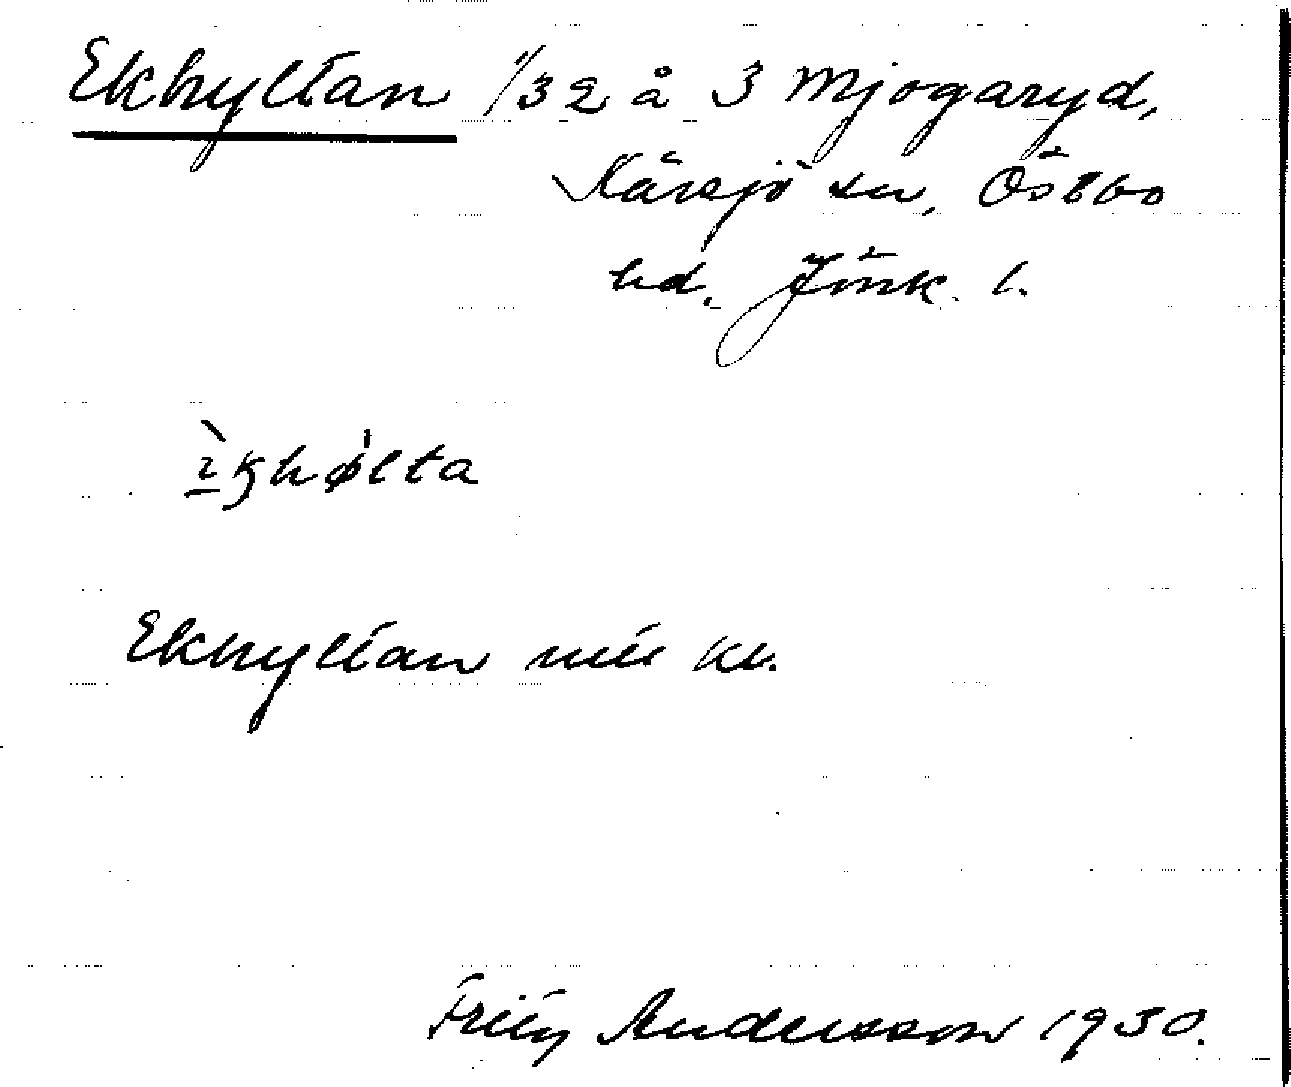 Ekhyltan 1/32 å 3 Mjogaryd,
Kärsjö sn, Östbo
hd, Jönk. l.
Ekhyltan mtl kl.
Fritz Andersson 1930.